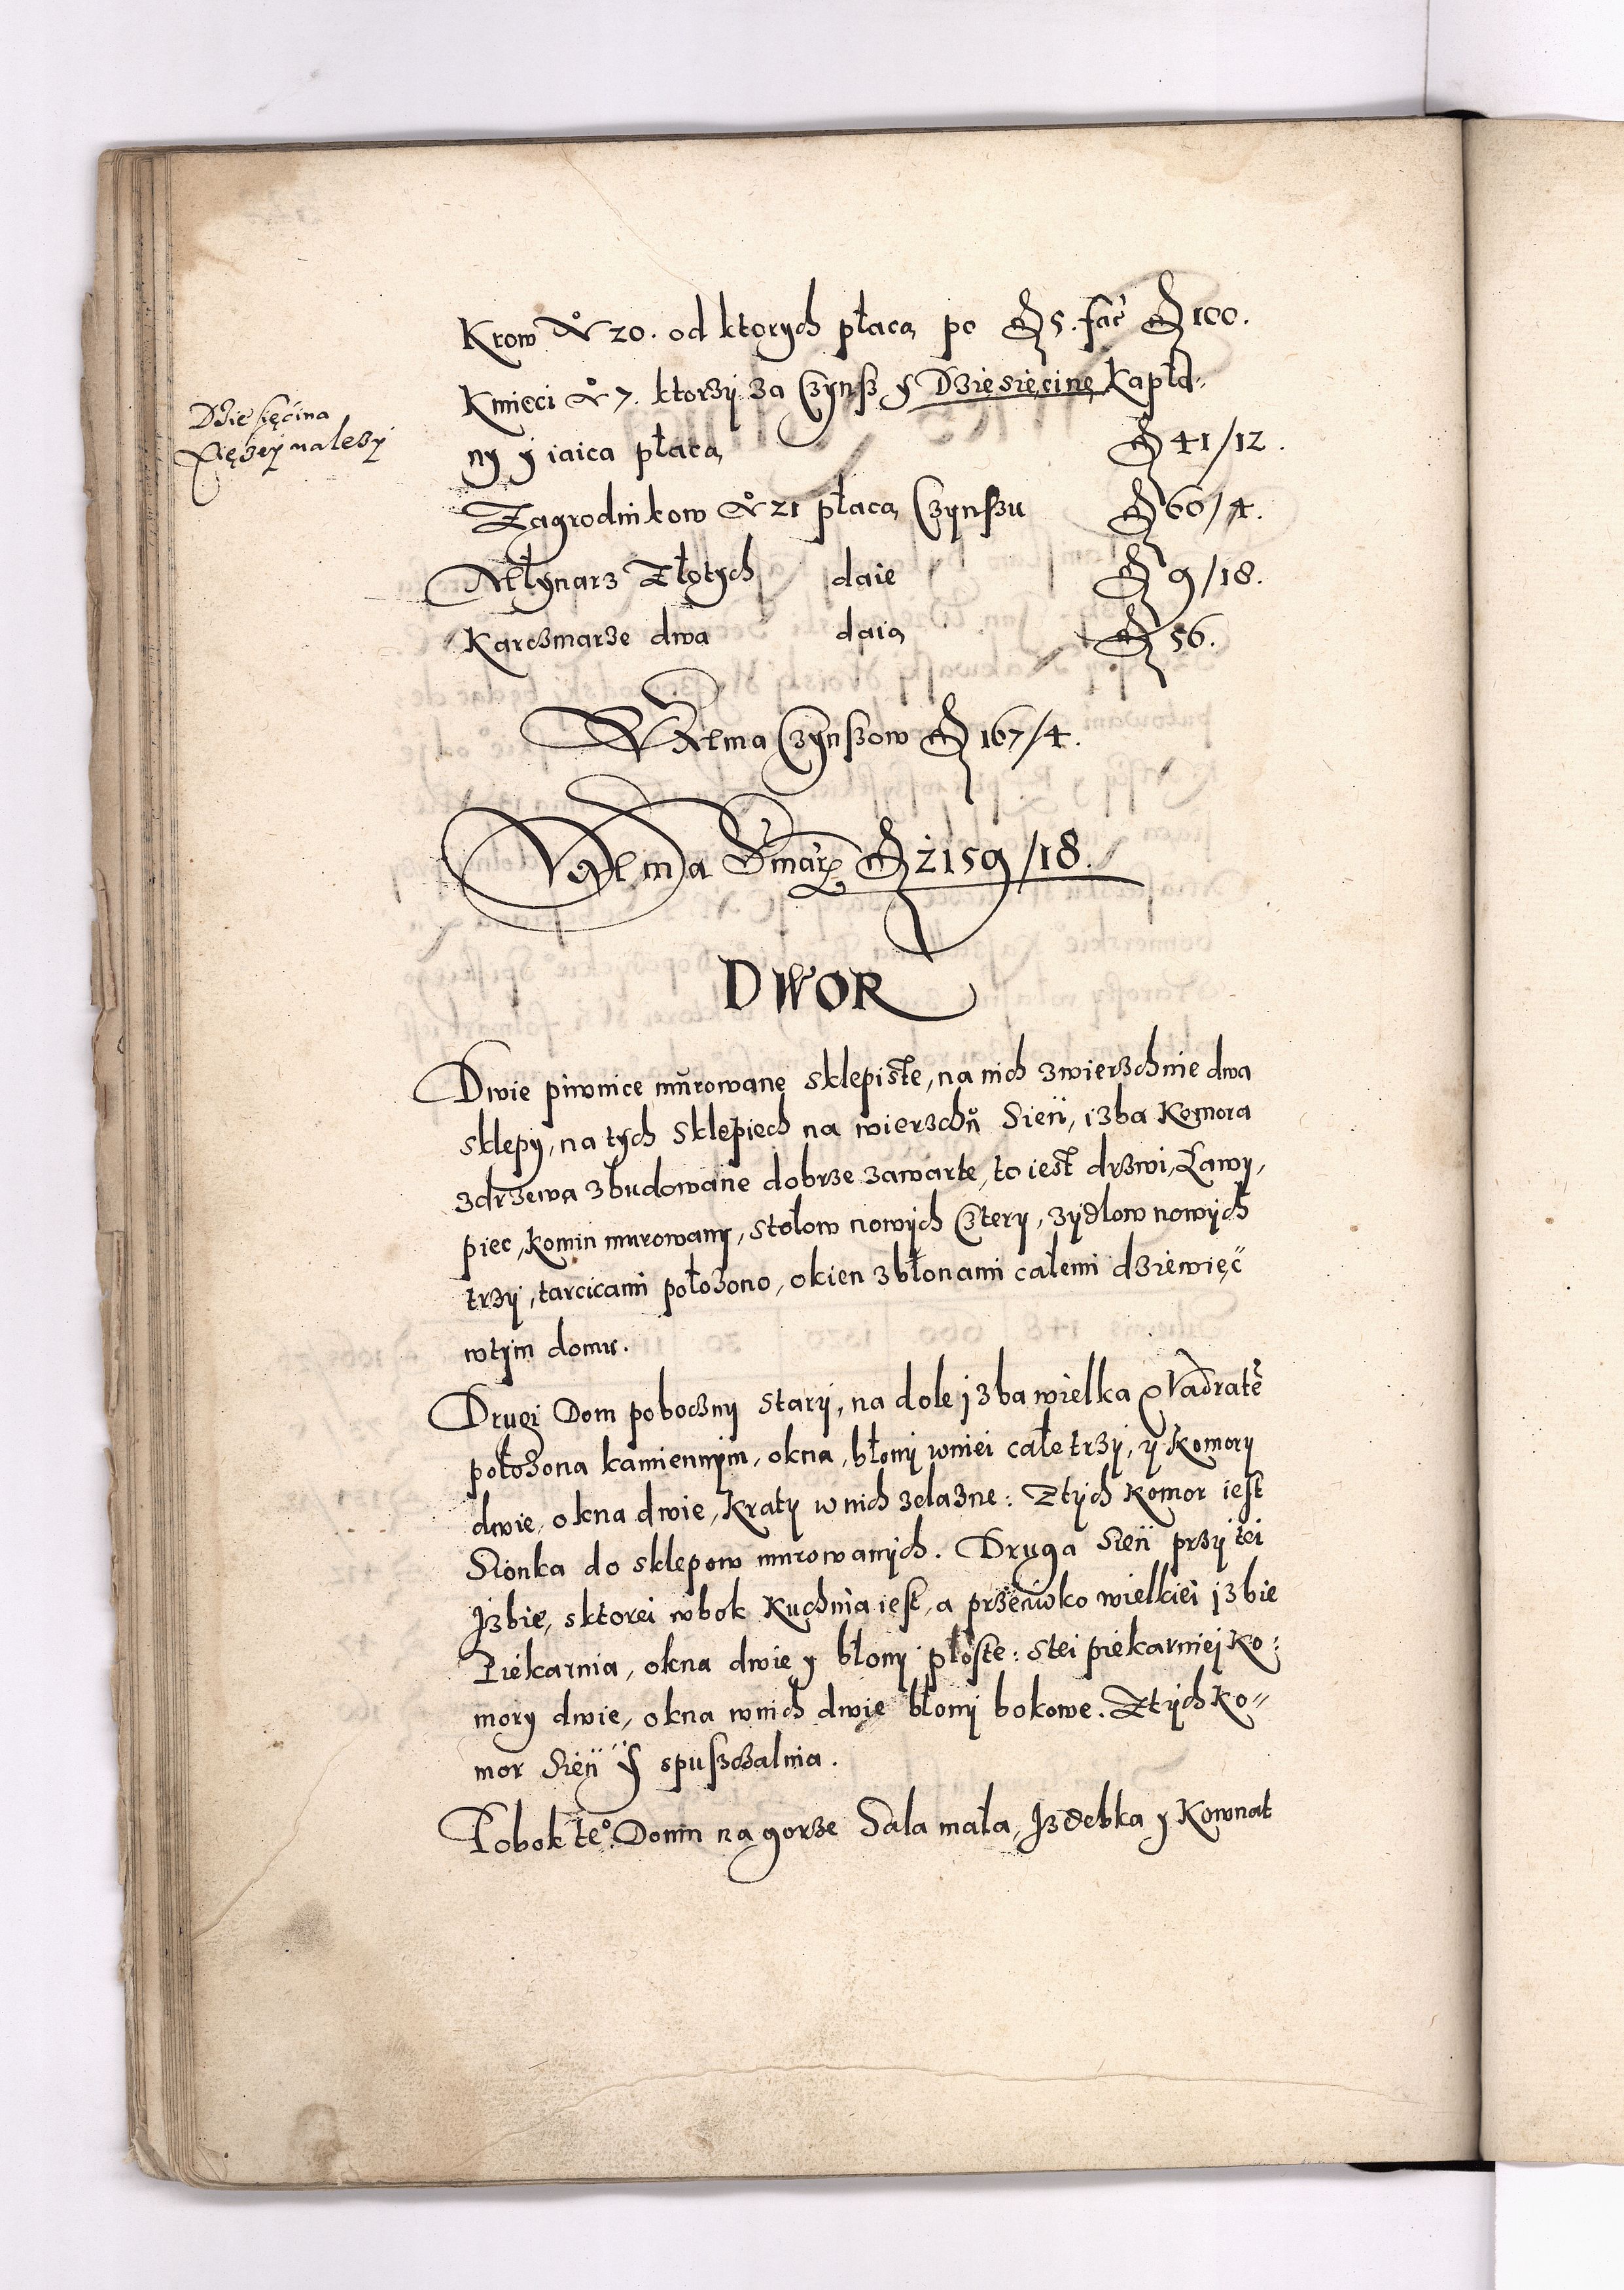 Krow No 20. od ktorych płacą po fl 5. fać fl 100.
Kmieci No 7. ktorzy za Czynsz y Dziesięcinę Kapła-
Dziesięcina
Xiężej należy
ny y iaica płacą fl 41/12.
Zagrodnikow No 21 płacą Czynszu fl 60/4.
Młynarz Złotych daie fl 9/18.
Karczmarze dwa daią fl 56.
Summa Czynszow fl 167/4.
Summa fl 2159/18.
DWOR
Dwie piwnice murowane sklepiste, na nich zwierzchnie dwa
sklepy, na tych sklepiech na wierzchu Sień, izba Komora
zdrzewa zbudowane dobrze zawarte, to iest drzwi, Ławy,
piec, komin murowany, stołow nowych Cztery, zydlow nowych
trzy, tarcicami położono, okien zbłonami całemi dziewięć
wtym domu.
Drugi Dom poboczny stary, na dole izba wielka Quadratē
położona kamiennym, okna, błony wniei całe trzy, y Komory
dwie, okna dwie, kraty w nich zelazne: Ztych komor iest
Sionka do sklepow murowanych. Druga Sień przy tei
Izbie, sktorei wbok Kuchnia iest, a przeciwko wielkiei izbie
Piekarnia, okna dwie y błony płoste: Stei piekarniei Ko:
mory dwie, okna wnich dwie błony bokowe. Ztych Ko-
mor Sień y spuszczalnia.
Pobok te° Domu na gorze Sala mała, Izdebka y Kownat